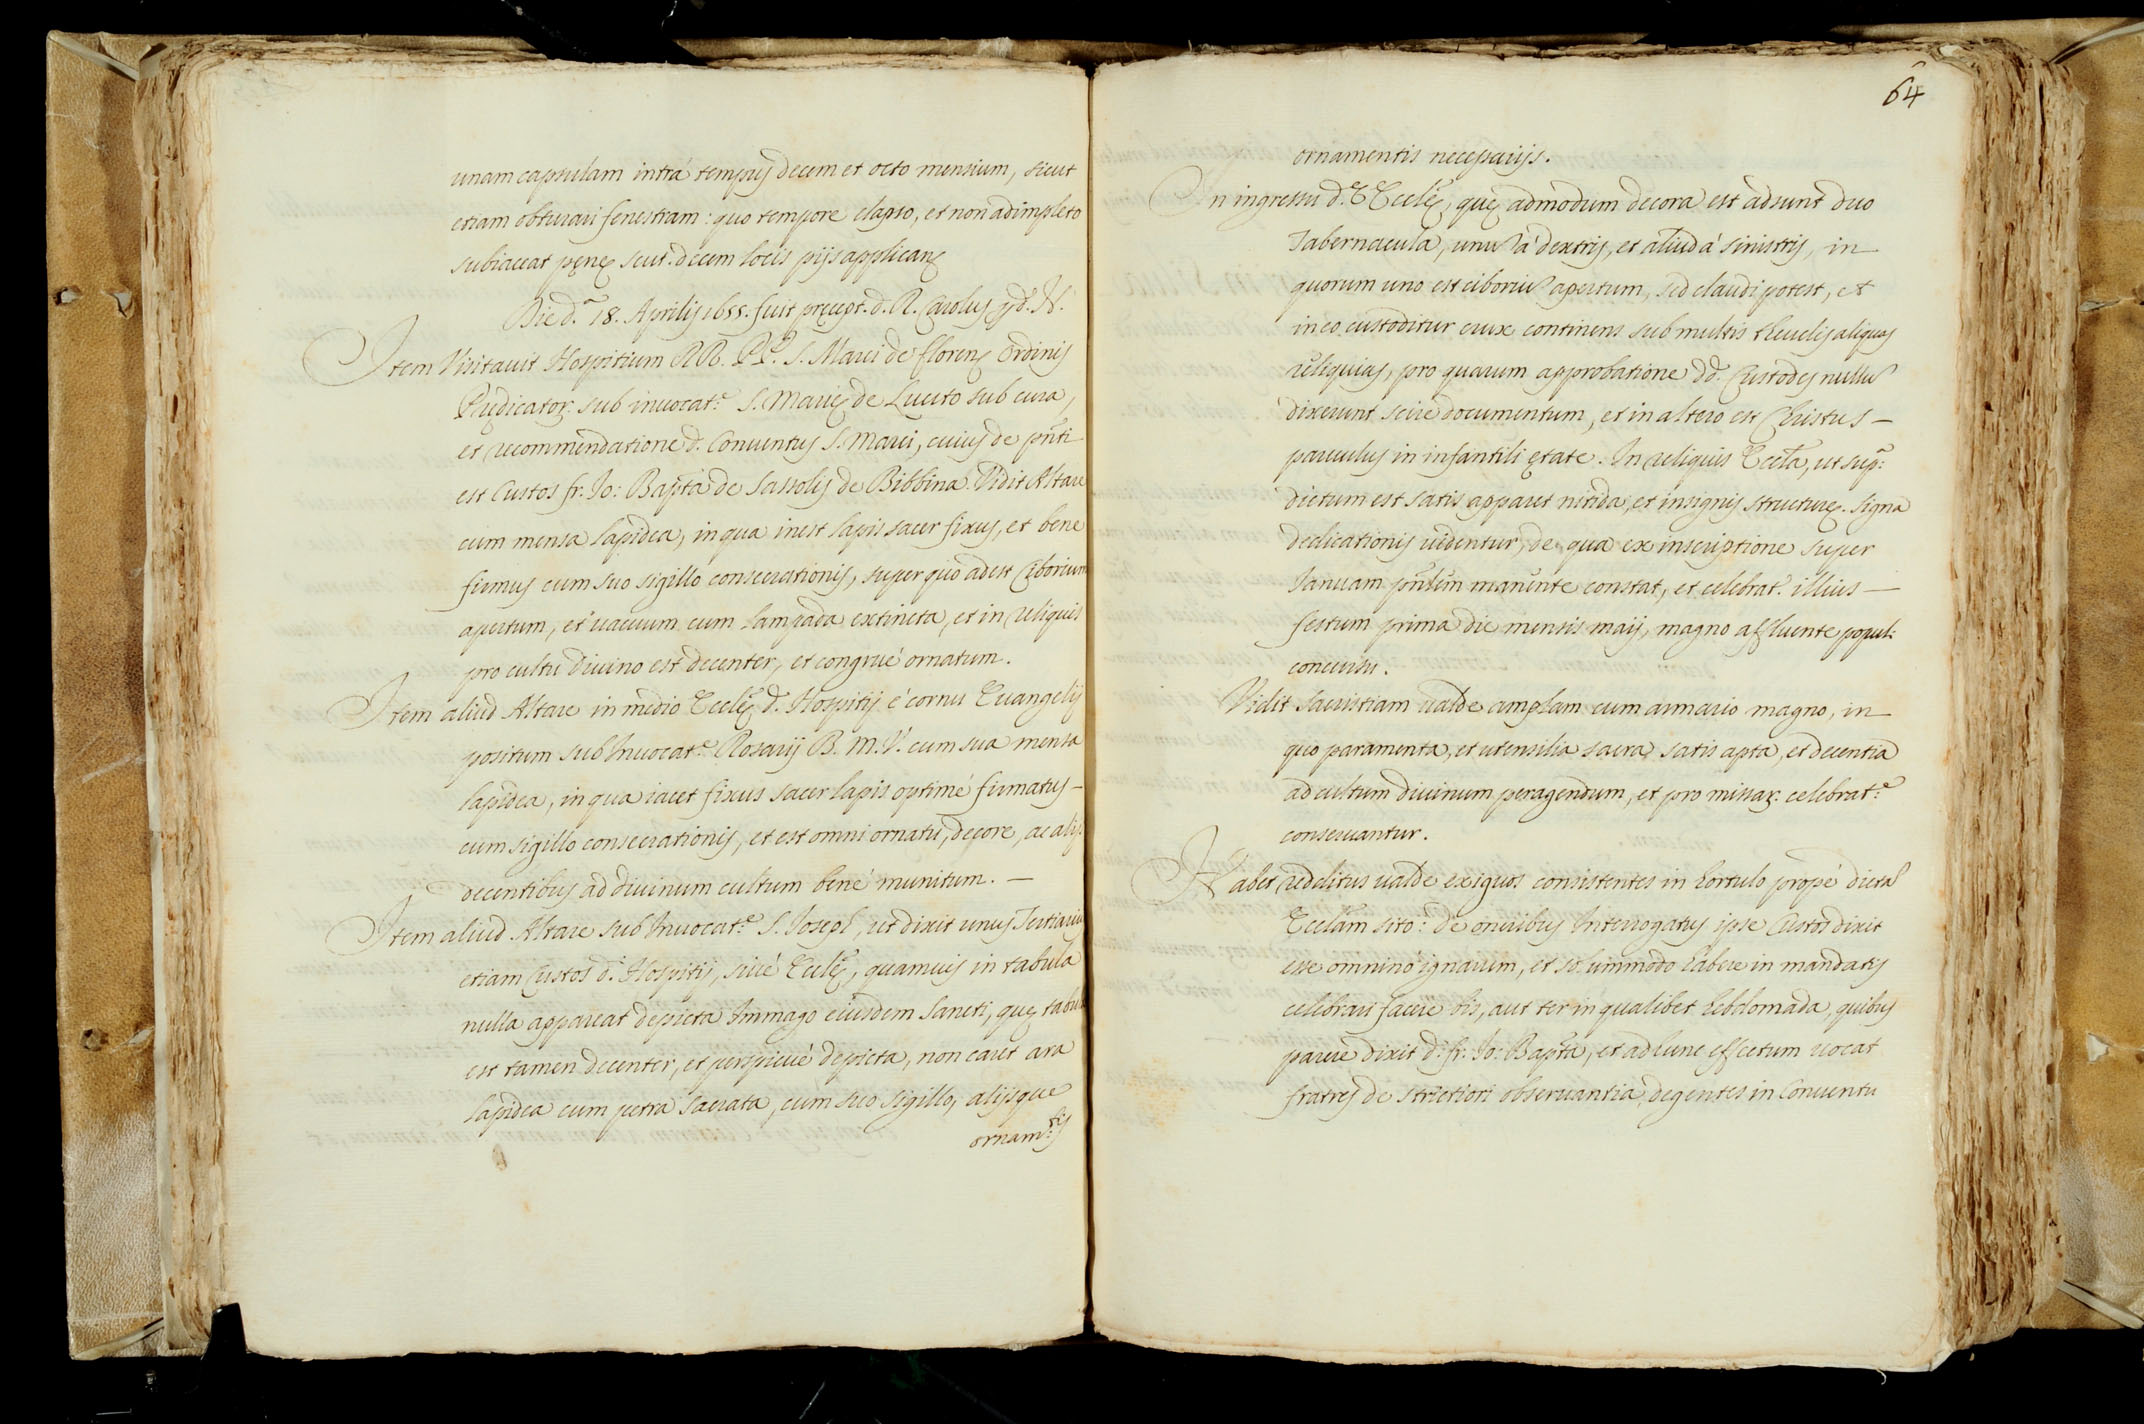 unam capsulam intrà tempus decem et octo mensium, sicut
etiam obturari fenestram: quo tempore elapso, et non adimpleto
subiaceat pęnę scut. decem locis pijs applicanę
Die d.ª 18. Aprilis 1655. fuit pręcept. d. R. Carolus
Item Visitauit Hospitium RR. PP. S. Marci de florenę Ordinis
Prędicator. sub inuocat.e S. Marię de Lucito sub cura,
et recommendatione d. Conuentus S. Marci, cuius de pn̄ti
est Custos fr. Io: Bapta de Sassolis de Bibbina. Vidit Altare
cum mensa lapidea, in qua inest lapis sacer fixus, et bene
firmus cum suo sigillo consecrationis, super quo adest Ciborium
apertum, et uacuum cum lampada extincta, et in reliquis
pro cultu diuino est decenter, et congruè ornatum.
Item aliud Altare in medio Ecclę d. Hospitij è cornu Euangelij
positum sub Inuocat.e Rosarij B. M. V. cum sua mensa
lapidea, in qua iacet fixus sacer lapis optimè firmatus –
cum sigillo consecrationis, et est omni ornatu, decore, ac alijs
decentibus ad diuinum cultum benè munitum. –
Item aliud Altare sub Inuocat.e S. Joseph, ut dixit unus Tertiarius
etiam Custos d. Hospitij, siuè Ecclę, quamuis in tabula
nulla appareat depicta Immago eiusdem Sancti, quę tabula
est tamen decenter, et perspicuè depicta, non caret ara
lapidea cum petra sacrata, cum suo sigillo, alijsque
ornam.tis
64
ornamentis necessarijs.
In ingressu d. Ecclę, quę admodum decora est adsunt duo
Tabernacula, unū à dextris, et aliud à sinistris, in
quorum uno est ciboriū apertum, sed claudi potest, et
in eo custoditur crux continens sub multis theculis aliquas
reliquias, pro quarum approbatione dd. Custodes nullū
dixerunt scire documentum, et in altero est Christus –
paruulus in infantili ętate. In reliquis Eccla, ut sup.
dictum est satis apparet nitida, et insignis structurę. signa
dedicationis uidentur, de qua ex inscriptione super
Ianuam pn̄lem manente constat, et celebrat.r illius –
festum prima die mensis maij, magno affluente popul.
concursu.
Vidit Sacristiam ualde amplam cum armario magno, in
quo paramenta, et utensilia sacra satis apta, et decentia
ad cultum diuinum peragendum, et pro missar. celebrat.e
conseruantur.
Habet redditus ualde exiguos consistentes in hortulo propè dictā
Ecclam sito: de oneribus Interrogatus ipse Custos dixit
esse omninò ignarum, et solummodo habere in mandatis
celebrari facere bis, aut ter in qualibet hebdomada, quibus
parere dixit d. fr. Io: Bapta, et ad hunc effectum uocat
fratres de strictiori obseruantia, degentes in Conuentu